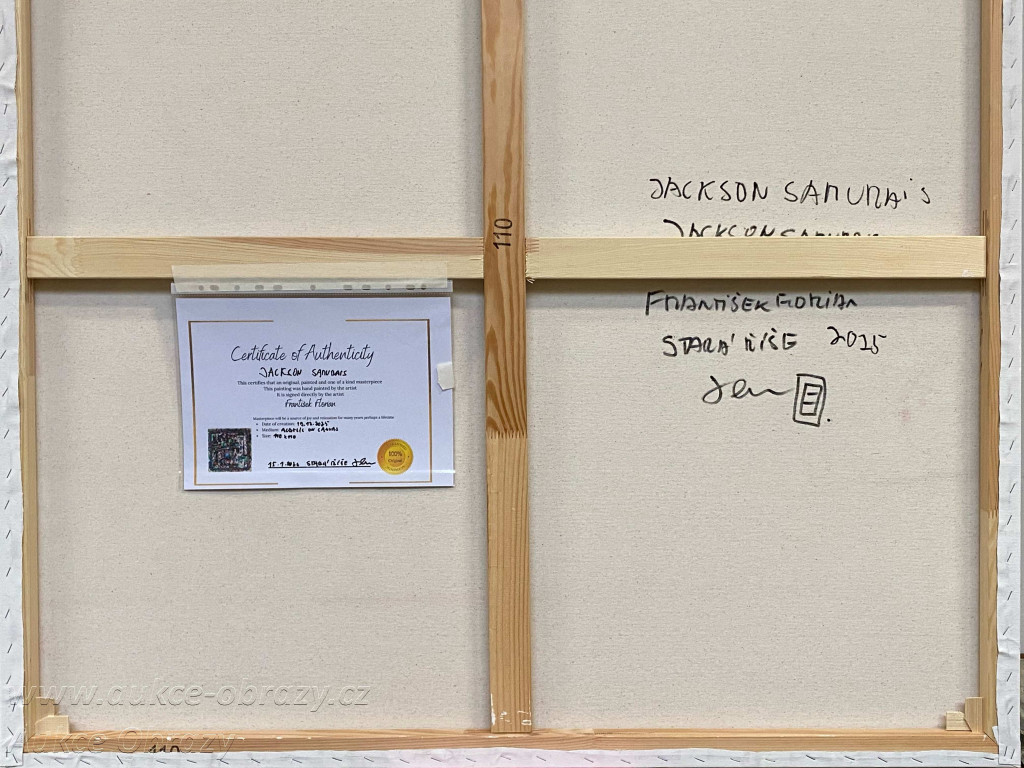 JACKSON SAMURAIS
JACKSON SAMURAIS
110
FRANTIŠEK FLORIAN
STARÁ ŘÍŠE 2025
Certificate of Authenticity
JACKSON SAMURAIS
This certifies that an original, painted and one of a kind masterpiece
This painting was hand painted by the artist
It is signed directly by the artist
František Florian
Masterpiece will be a source of joy and relaxation for many years perhaps a lifetime
• Date of creation: 19.12.2025
• Medium: ACRYLIC ON CANVAS
• Size: 110 x 110
STARÁ ŘÍŠE
100%
www.aukce-obrazy.cz
Aukce Obrazy
110